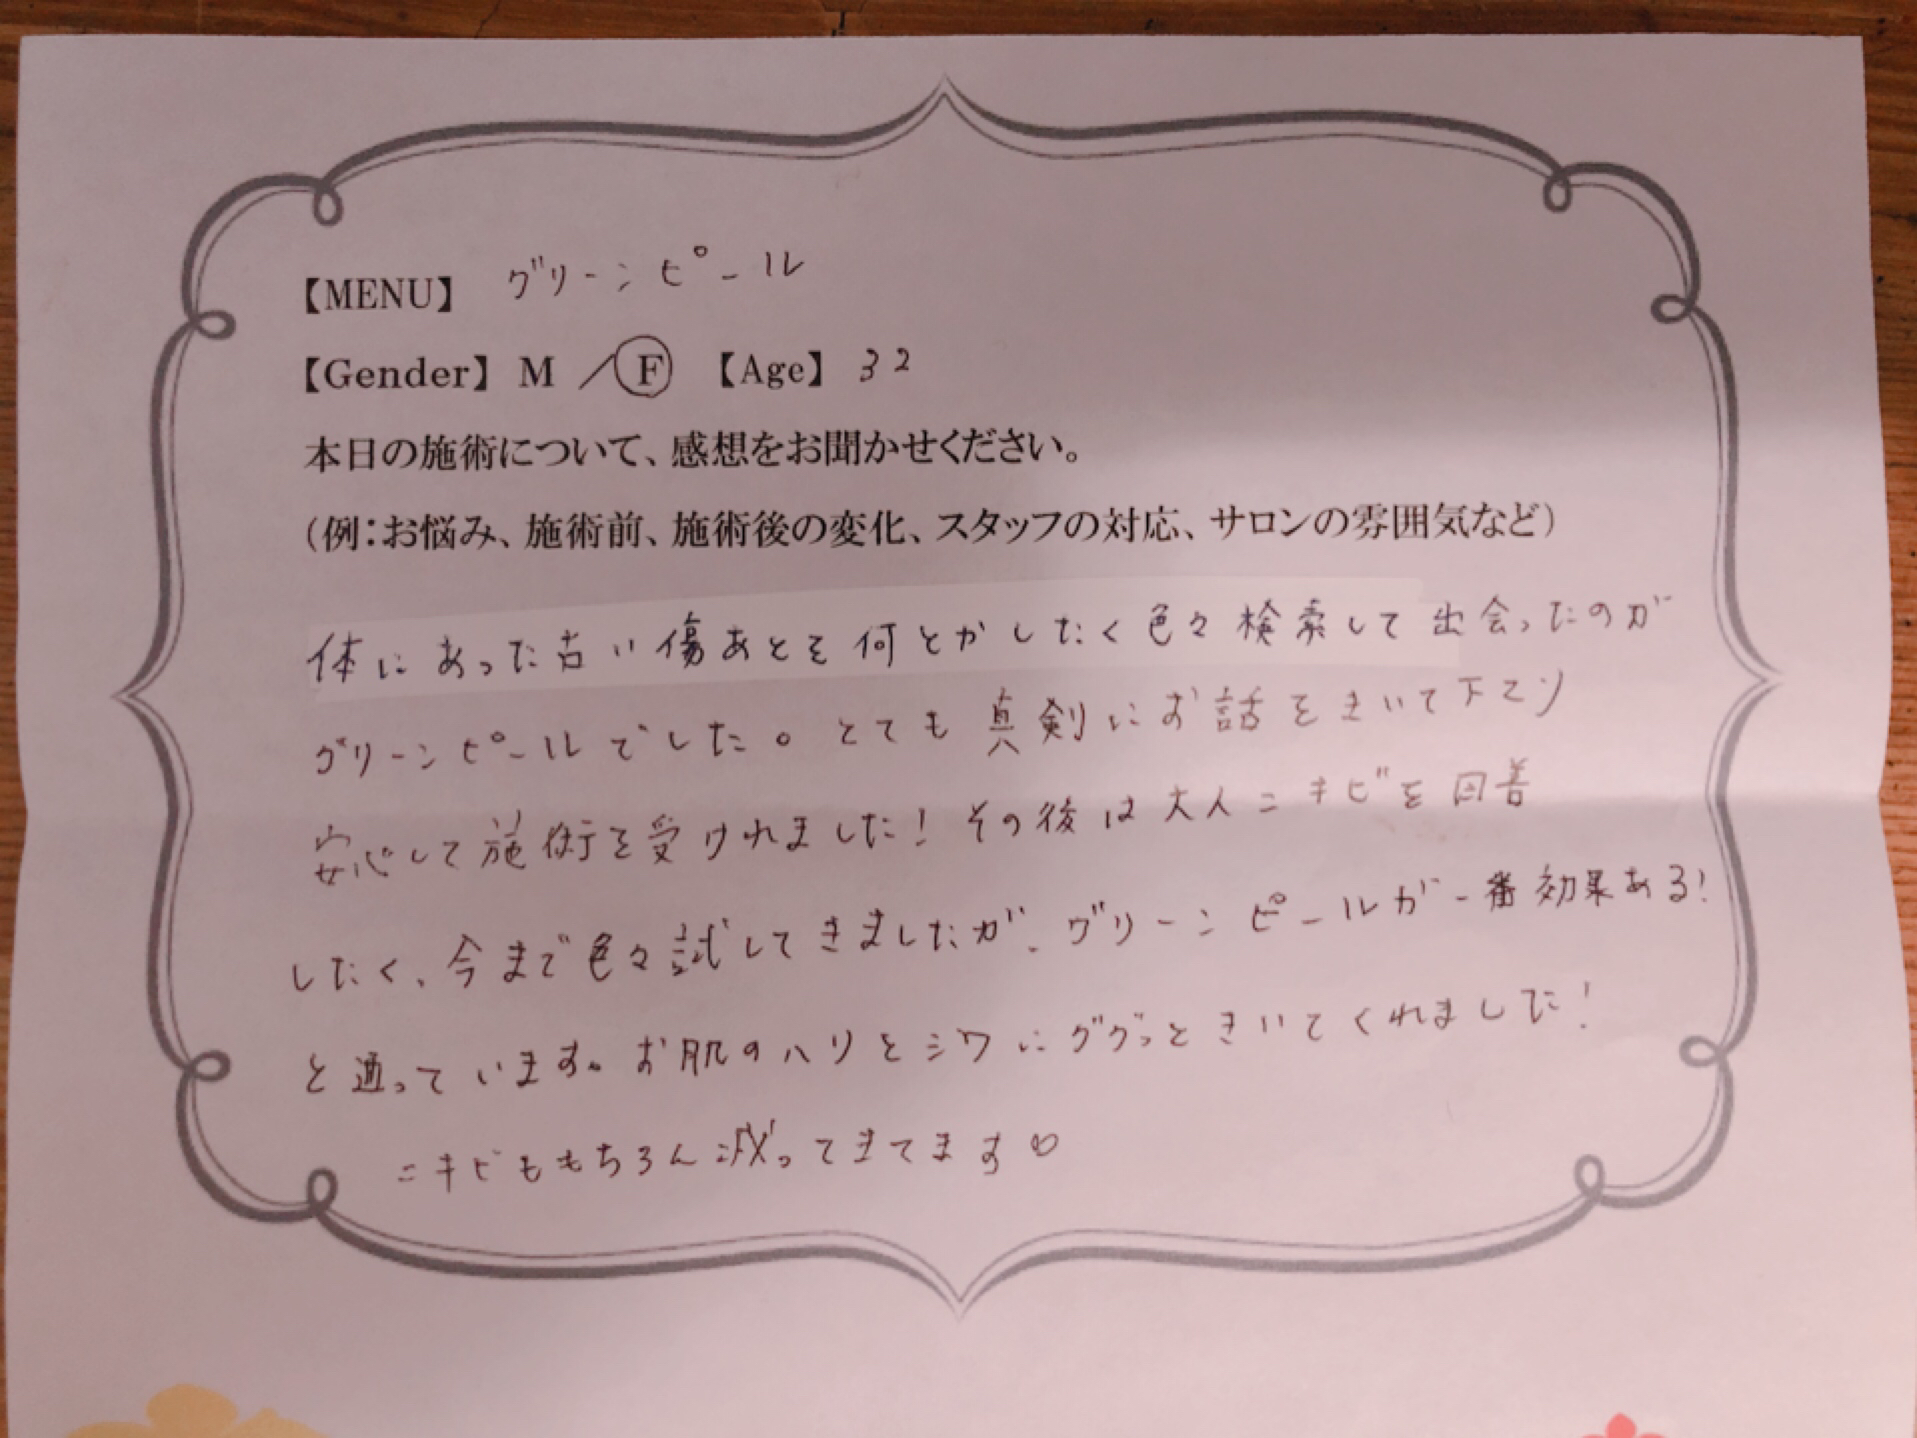 【MENU】 グリーンピール
【Gender】 M ／F 【Age】 32
本日の施術について、感想をお聞かせください。
（例：お悩み、施術前、施術後の変化、スタッフの対応、サロンの雰囲気など）
体にあった古い傷あとを何とかしたく色々検索して出会ったのが
グリーンピールでした。とても真剣にお話をきいて下さり
安心して施術を受けれました！その後は大人ニキビを回善
したく、今まで色々試してきましたが、グリーンピールが一番効果ある！
と通っています。お肌のハリとシワにググっときいてくれました！
ニキビももちろん減ってきてます♡